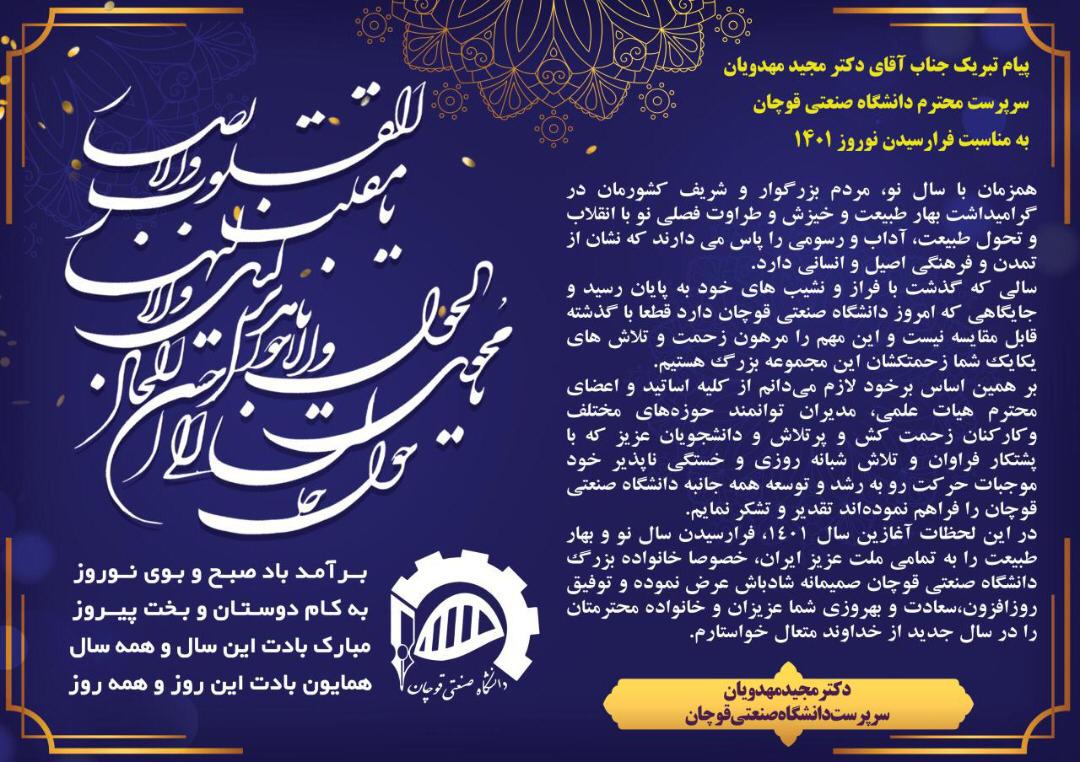 پیام تبریک جناب آقای دکتر مجید مهدویان
سرپرست محترم دانشگاه صنعتی قوچان
به مناسبت فرارسیدن نوروز ۱۴۰۱
همزمان با سال نو، مردم بزرگوار و شریف کشورمان در
گرامیداشت بهار طبیعت و خیزش و طراوت فصلی نو با انقلاب
و تحول طبیعت، آداب و رسومی را پاس می دارند که نشان از
تمدن و فرهنگی اصیل و انسانی دارد.
سالی که گذشت با فراز و نشیب های خود به پایان رسید و
جایگاهی که امروز دانشگاه صنعتی قوچان دارد قطعا با گذشته
قابل مقایسه نیست و این مهم را مرهون زحمت و تلاش های
یکایک شما زحمتکشان این مجموعه بزرگ هستیم.
بر همین اساس برخود لازم می‌دانم از کلیه اساتید و اعضای
محترم هیات علمی، مدیران توانمند حوزه‌های مختلف
وکارکنان زحمت کش و پرتلاش و دانشجویان عزیز که با
پشتکار فراوان و تلاش شبانه روزی و خستگی ناپذیر خود
موجبات حرکت رو به رشد و توسعه همه جانبه دانشگاه صنعتی
قوچان را فراهم نموده‌اند تقدیر و تشکر نمایم.
در این لحظات آغازین سال ۱۴۰۱، فرارسیدن سال نو و بهار
طبیعت را به تمامی ملت عزیز ایران، خصوصا خانواده بزرگ
دانشگاه صنعتی قوچان صمیمانه شادباش عرض نموده و توفیق
روزافزون،سعادت و بهروزی شما عزیزان و خانواده محترمتان
را در سال جدید از خداوند متعال خواستارم.
دکتر مجید مهدویان
سرپرست دانشگاه صنعتی قوچان
یا مقلب القلوب والابصار
یا مدبر اللیل والنهار
یا محول الحول والاحوال
حول حالنا الی احسن الحال
برآمد باد صبح و بوی نوروز
به کام دوستان و بخت پیروز
مبارک بادت این سال و همه سال
همایون بادت این روز و همه روز
دانشگاه صنعتی قوچان